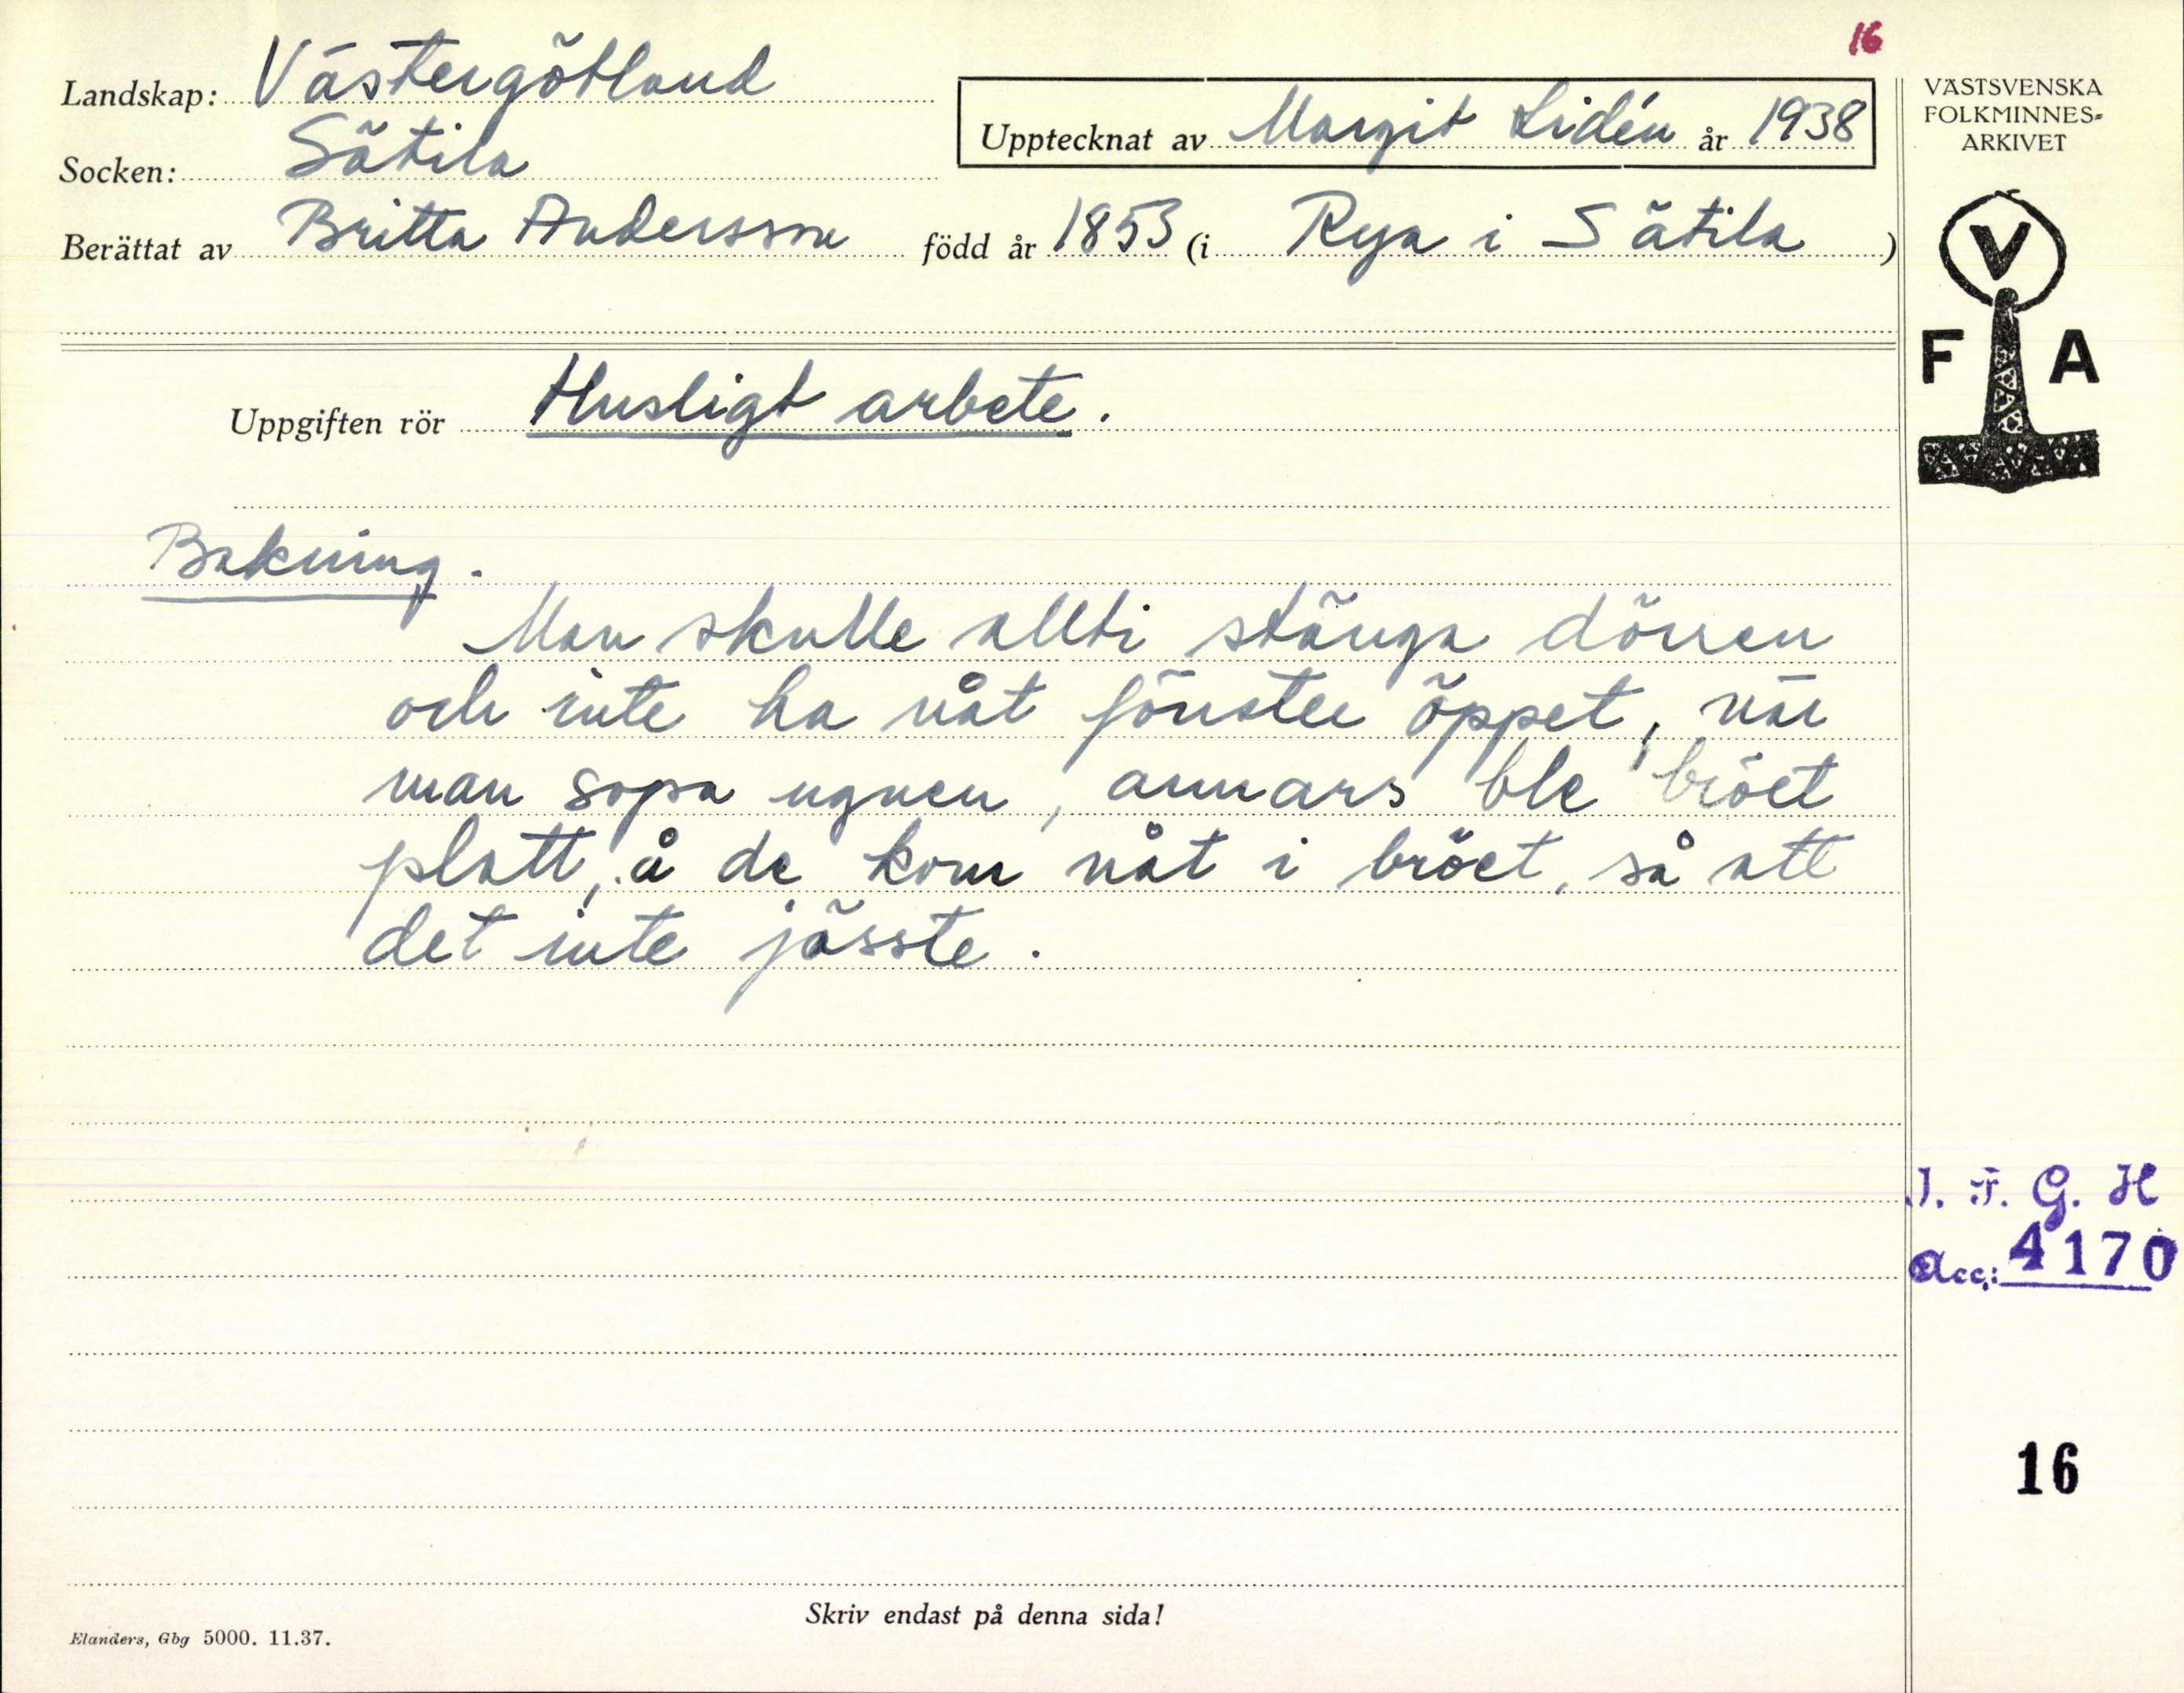 16
Landskap: Västergötland
Socken: Sätila
Upptecknat av Margit Lidén år 1938
Berättat av Britta Andersson född år 1853 (i Rya i Sätila)
VÄSTSVENSKA
FOLKMINNES-
ARKIVET
V
F A
Uppgiften rör Husligt arbete.
Bakning.
Man skulle allti stänga dörren
och inte ha nåt fönster öppet, när
man sopa ugnen, annars ble bröet
platt, å de kom nåt i bröet, så att
det inte jässte.
I. F. G. H
Acc: 4170
16
Skriv endast på denna sida!
Elanders, Gbg 5000. 11.37.